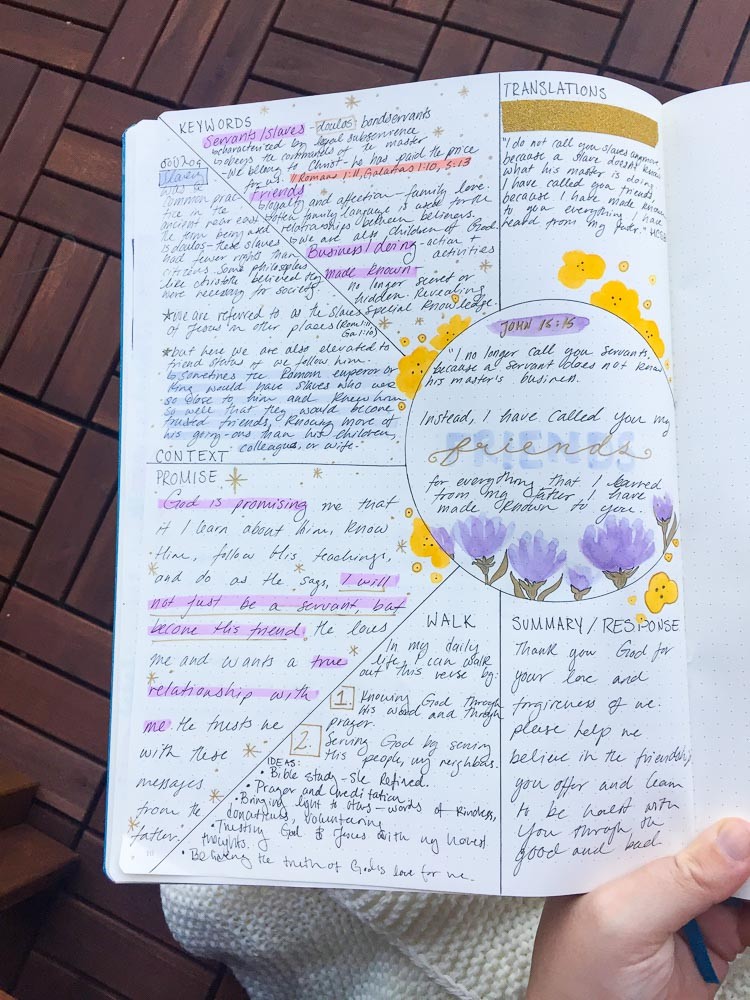 KEYWORDS
Servants/Slaves - doulos - bondservants
characterized by loyal subservience
obeys the commands of the master
- we belong to Christ - he has paid the price
for us. // Romans 1:1, Galatians 1:10, 5:13
Friends
loyalty and affection - family love.
often family language is used for the
relationships between believers.
we are also children of God.
Business/doing - action +
activities
made known -
no longer secret or
hidden. Revealing
special knowledge.
δοῦλος
Slavery
was a
common prac-
tice in the
ancient near east
the term being used
is doulos - these slaves
had fewer rights than
citizens. Some philosophers
like Aristotle believed they
were necessary for society.
*we are referred to as the slaves
of Jesus in other places (Rom 1:1,
Ga 1:10)
*but here we are also elevated to
friend status if we follow him.
Sometimes the Roman emperor or
King would have slaves who were
so close to him and knew him
so well that they would become
trusted friends, knowing more of
his going-ons than his children,
colleagues, or wife.
CONTEXT
TRANSLATIONS
"I do not call you slaves anymore
because a slave doesn't know
what his master is doing.
I have called you friends
because I have made known
to you everything I have
heard from my Father." HCSB
JOHN 15:15
"I no longer call you servants,
because a servant does not know
his master's business.
Instead, I have called you my
FRIENDS
friends
for everything that I learned
from my father I have
made known to you.
PROMISE
God is promising me that
if I learn about Him, know
Him, follow His teachings,
and do as He says, I will
not just be a servant, but
become His friend. He loves
me and wants a true
relationship with
me. He trusts me
with these
messages
from the
father.
WALK
In my daily
life, I can walk
out this verse by:
1. Knowing God through
His word and through
prayer.
2. Serving God by serving
His people, my neighbors.
IDEAS:
• Bible study - She Refined.
• Prayer and Meditation
• Bringing light to others - words of kindness,
donations, volunteering
• Trusting God & Jesus with my honest
thoughts.
• Believing the truth of God's love for me.
SUMMARY/RESPONSE
Thank you God for
your love and
forgiveness of me.
please help me
believe in the friendship
you offer and learn
to be honest with
you through the
good and bad.